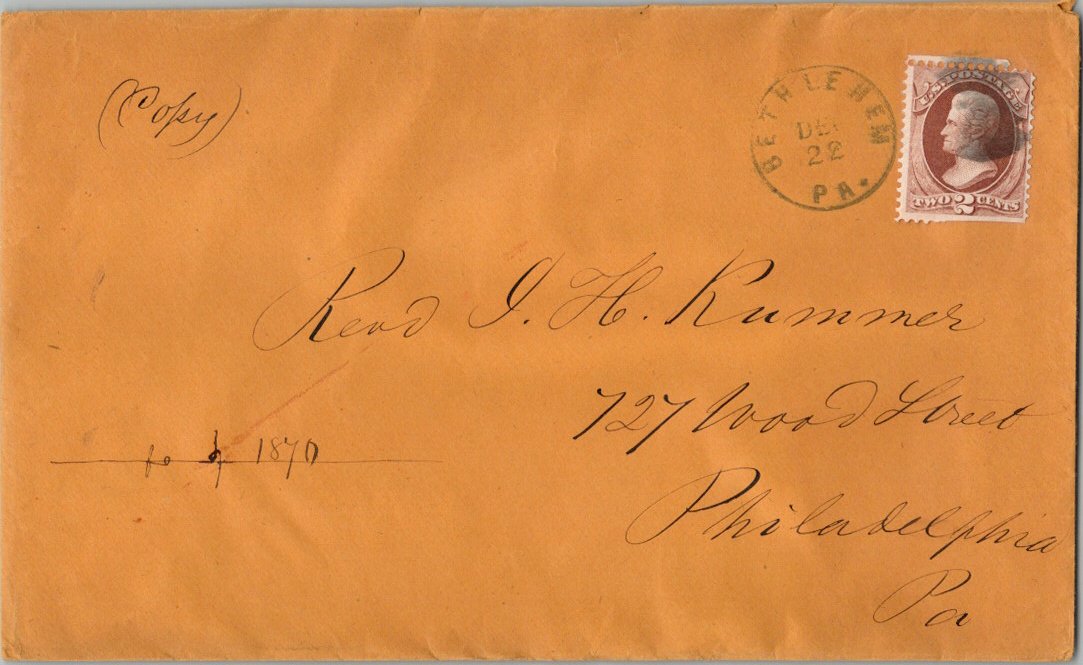 (Copy)
BETHLEHEM
DEC
22
PA.
U.S. POSTAGE
TWO 2 CENTS
Revd J. H. Kummer
727 Wood Street
1870
Philadelphia
Pa